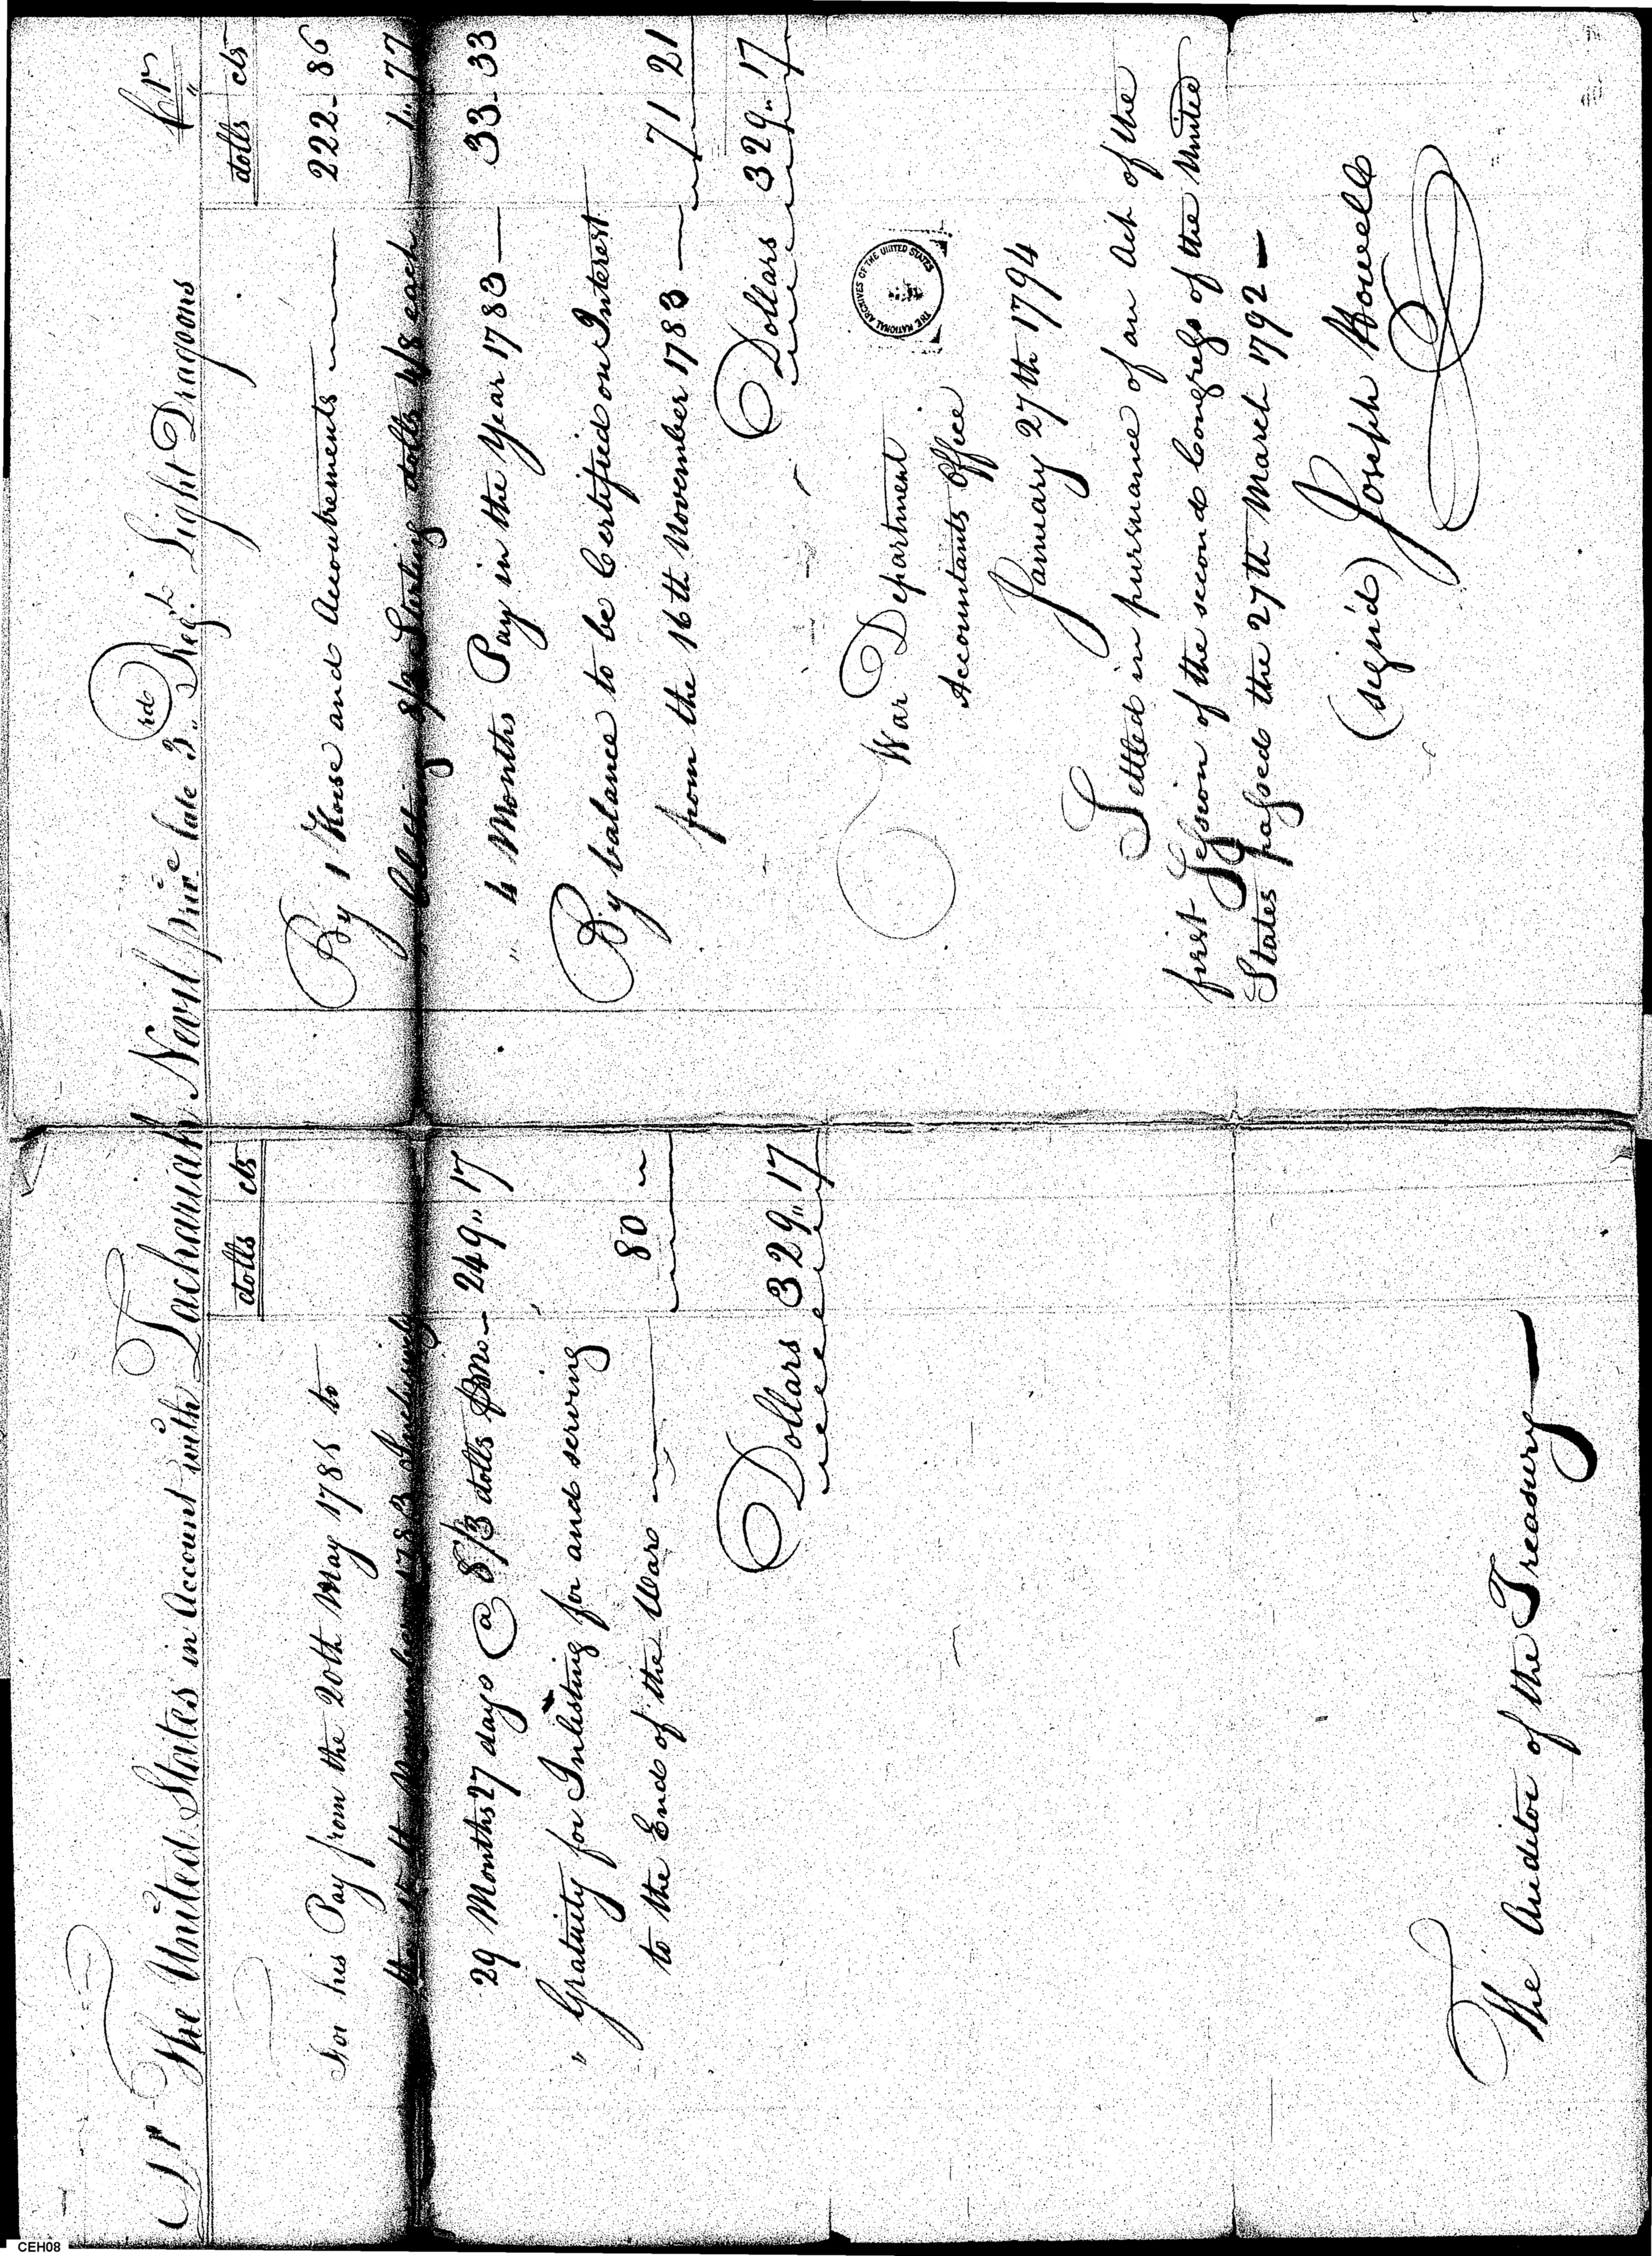 Dr The United States in Account with Zachariah Nevil priv.e late 3.rd Reg.t Light Dragoons Cr
dolls cts
For his Pay from the 20th May 1781 to
the 15th November 1783 Inclusively
29 Months 27 days @ 8/3 dolls pr mo. 249 " 17
" Gratuity for Inlisting for and serving
to the End of the War 80
Dollars 329 " 17
The Auditor of the Treasury
dolls cts
By 1 Horse and Accoutrements 222 - 86
Sterling dolls 4/8 each 1 " 77
" 4 Months Pay in the Year 1783 33 - 33
By balance to be Certified on Interest
from the 16th November 1783 71 21
Dollars 329 " 17
THE NATIONAL ARCHIVES OF THE UNITED STATES
War Department
Accountants Office
January 27th 1794
Settled in pursuance of an Act of the
first Session of the second Congress of the United
States passed the 27th March 1792
(sign'd) Joseph Howell
CEH08